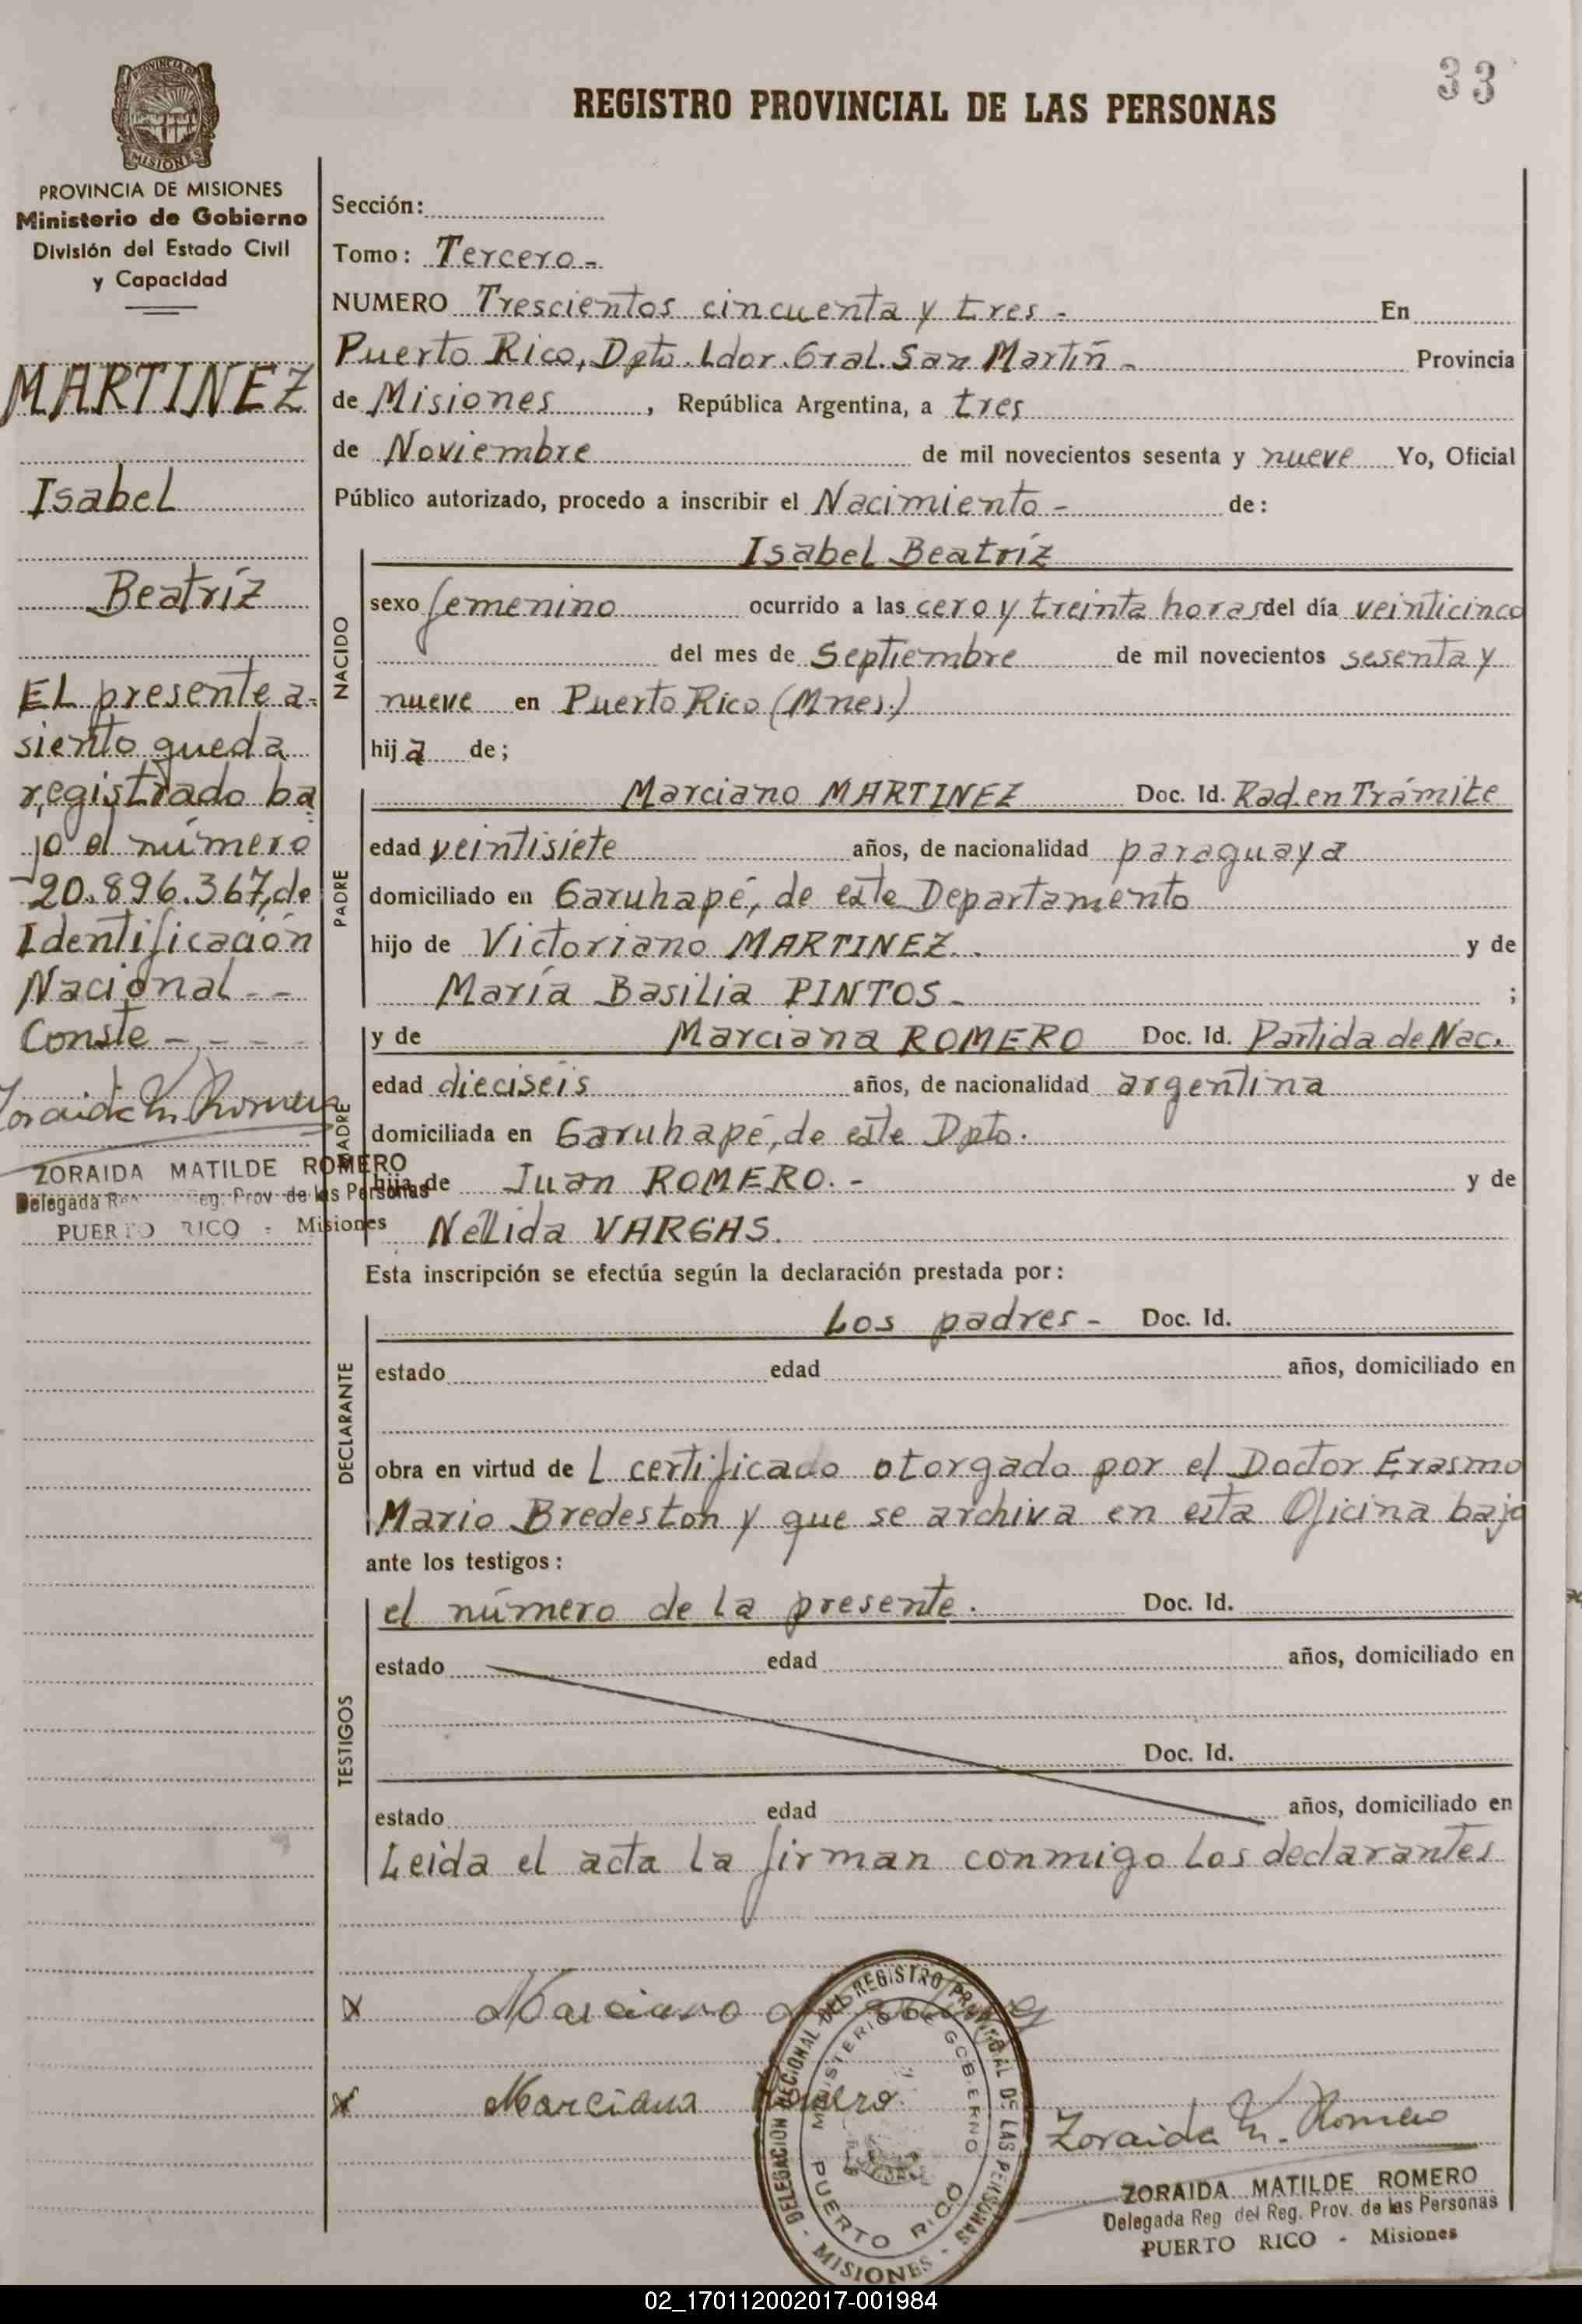 33
REGISTRO PROVINCIAL DE LAS PERSONAS
PROVINCIA DE MISIONES
MISIONES
PROVINCIA DE MISIONES
Ministerio de Gobierno
División del Estado Civil
y Capacidad
MARTINEZ
Isabel
Beatríz
EL presente a-
siento queda
registrado ba
jo el número
20.896.367, de
Identificación
Nacional - -
Conste - - - -
Zoraida M. Romero
ZORAIDA MATILDE ROMERO
Delegada Reg. Prov. de las Personas
PUERTO RICO - Misiones
Sección:
Tomo: Tercero -
NUMERO Trescientos cincuenta y tres - En
Puerto Rico, Dpto. Ldor. Gral. San Martín - Provincia
de Misiones , República Argentina, a tres
de Noviembre de mil novecientos sesenta y nueve Yo, Oficial
Público autorizado, procedo a inscribir el Nacimiento - de:
NACIDO
Isabel Beatríz
sexo femenino ocurrido a las cero y treinta horas del día veinticinco
del mes de Septiembre de mil novecientos sesenta y
nueve en Puerto Rico (Mnes.)
hija de;
PADRE
Marciano MARTINEZ Doc. Id. Rad. en Trámite
edad veintisiete años, de nacionalidad paraguaya
domiciliado en Garuhapé, de este Departamento
hijo de Victoriano MARTINEZ. y de
María Basilia PINTOS - ;
MADRE
y de Marciana ROMERO Doc. Id. Partida de Nac.
edad dieciseis años, de nacionalidad argentina
domiciliada en Garuhapé, de este Dpto.
hija de Juan ROMERO. - y de
Nélida VARGAS.
Esta inscripción se efectúa según la declaración prestada por:
DECLARANTE
Los padres - Doc. Id.
estado edad años, domiciliado en
obra en virtud de L certificado otorgado por el Doctor Erasmo
Mario Bredeston y que se archiva en esta Oficina bajo
ante los testigos:
TESTIGOS
el número de la presente. Doc. Id.
estado edad años, domiciliado en
Doc. Id.
estado edad años, domiciliado en
Leida el acta la firman conmigo los declarantes
X Marciano
X Marciana Romero
DELEGACION REGIONAL DEL REGISTRO PROVINCIAL DE LAS PERSONAS - MISIONES -
MINISTERIO DE GOBIERNO
PUERTO RICO
Zoraida M. Romero
ZORAIDA MATILDE ROMERO
Delegada Reg del Reg. Prov. de las Personas
PUERTO RICO - Misiones
02_170112002017-001984